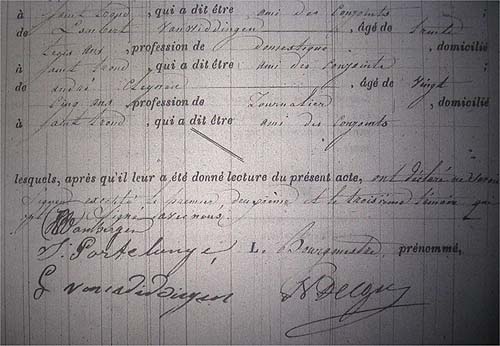 à Saint Trond , qui a dit être ami des conjoints
de Lambert Vanwiddingen , âgé de trente
ans , profession de domestique , domicilié
à Saint Trond , qui a dit être ami des conjoints
de André , âgé de vingt
cinq ans , profession de Journalier , domicilié
à Saint Trond , qui a dit être ami des conjoints
lesquels, après qu'il leur a été donné lecture du présent acte, ont déclaré ne savoir
signer excepté le premier, deuxième et le troisième témoin qui
ont signé avec nous.
L. Bourgmestre prénommé,